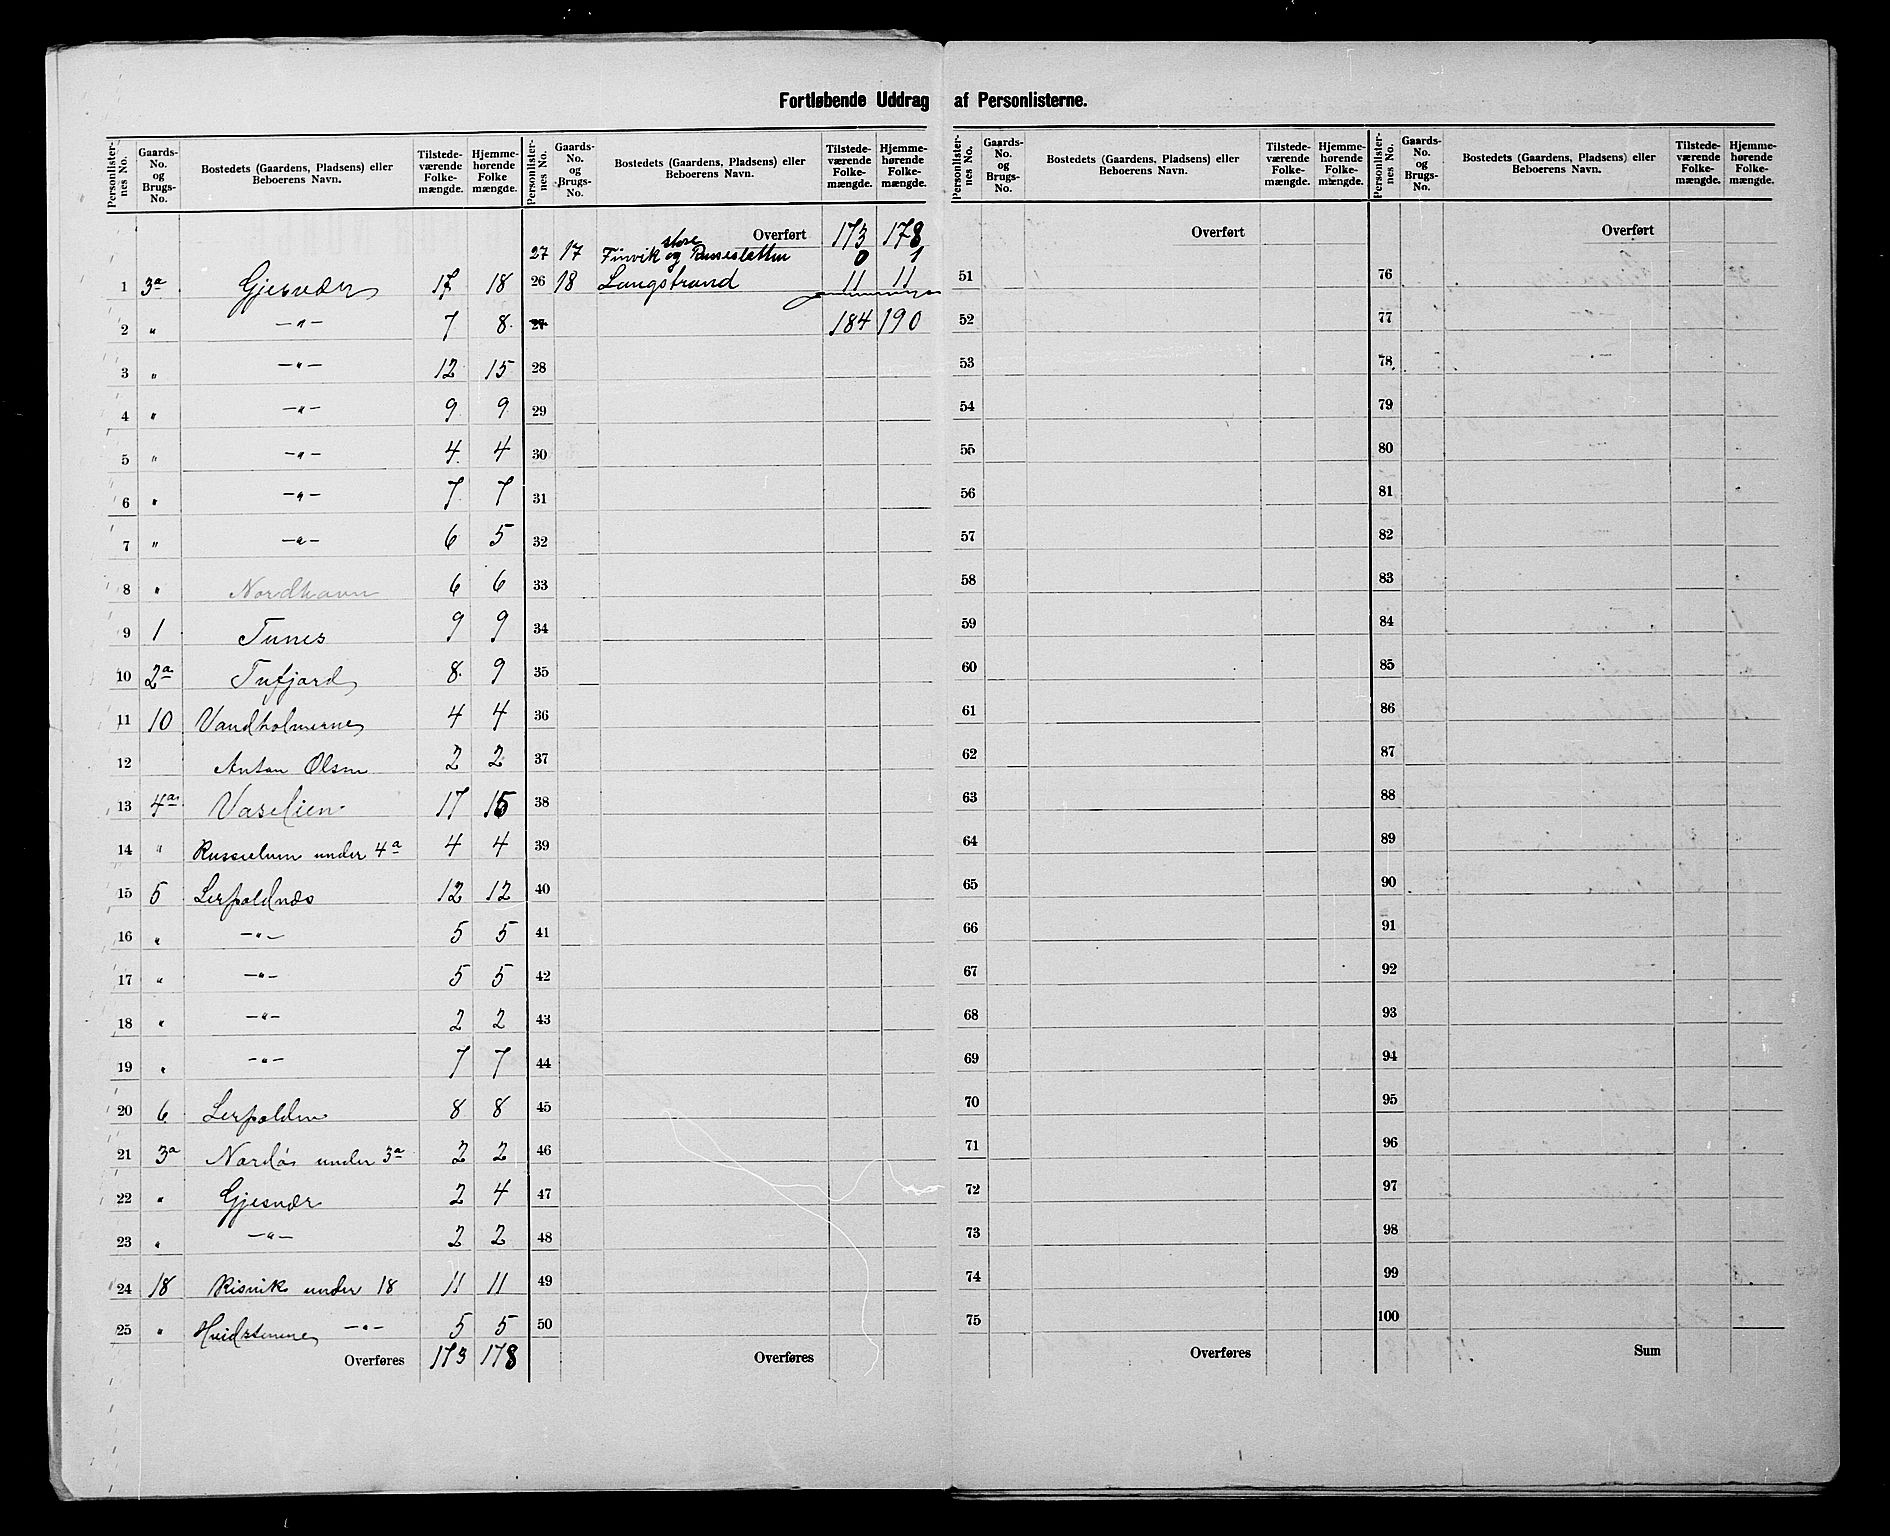 Fortløbende Uddrag af Personlisterne.
Personlisternes No. | Gaards-No. og Brugs-No. | Bostedets (Gaardens, Pladsens) eller Beboerens Navn. | Tilstedeværende Folkemængde. | Hjemmehørende Folkemængde.
1 3a Gjesvær 17 18
2 " —"— 7 8
3 " —"— 12 15
4 " —"— 9 9
5 " —"— 4 4
6 " —"— 7 7
7 " —"— 6 5
8 " Nordhavn 6 6
9 1 Tunes 9 9
10 2a Tufjord 8 9
11 10 Vandholmerne 4 4
12 Anton Olsen 2 2
13 4a Vaselien 17 15
14 " under 4a 4 4
15 5 Lerpoldnæs 12 12
16 " —"— 5 5
17 " —"— 5 5
18 " —"— 2 2
19 " —"— 7 7
20 6 Lerpolden 8 8
21 3a Nordås under 3a 2 2
22 " Gjesvær 2 4
23 " —"— 2 2
24 18 Risvik under 18 11 11
25 " Hvidstenene —"— 5 5
Overføres 173 178
Personlisternes No. | Gaards-No. og Brugs-No. | Bostedets (Gaardens, Pladsens) eller Beboerens Navn. | Tilstedeværende Folkemængde. | Hjemmehørende Folkemængde.
Overført 173 178
27 17 Finvik og store 0 1
26 18 Langstrand 11 11
27 184 190
28
29
30
31
32
33
34
35
36
37
38
39
40
41
42
43
44
45
46
47
48
49
50
Overføres
Personlisternes No. | Gaards-No. og Brugs-No. | Bostedets (Gaardens, Pladsens) eller Beboerens Navn. | Tilstedeværende Folkemængde. | Hjemmehørende Folkemængde.
Overført
51
52
53
54
55
56
57
58
59
60
61
62
63
64
65
66
67
68
69
70
71
72
73
74
75
Overføres
Personlisternes No. | Gaards-No. og Brugs-No. | Bostedets (Gaardens, Pladsens) eller Beboerens Navn. | Tilstedeværende Folkemængde. | Hjemmehørende Folkemængde.
Overført
76
77
78
79
80
81
82
83
84
85
86
87
88
89
90
91
92
93
94
95
96
97
98
99
100
Sum